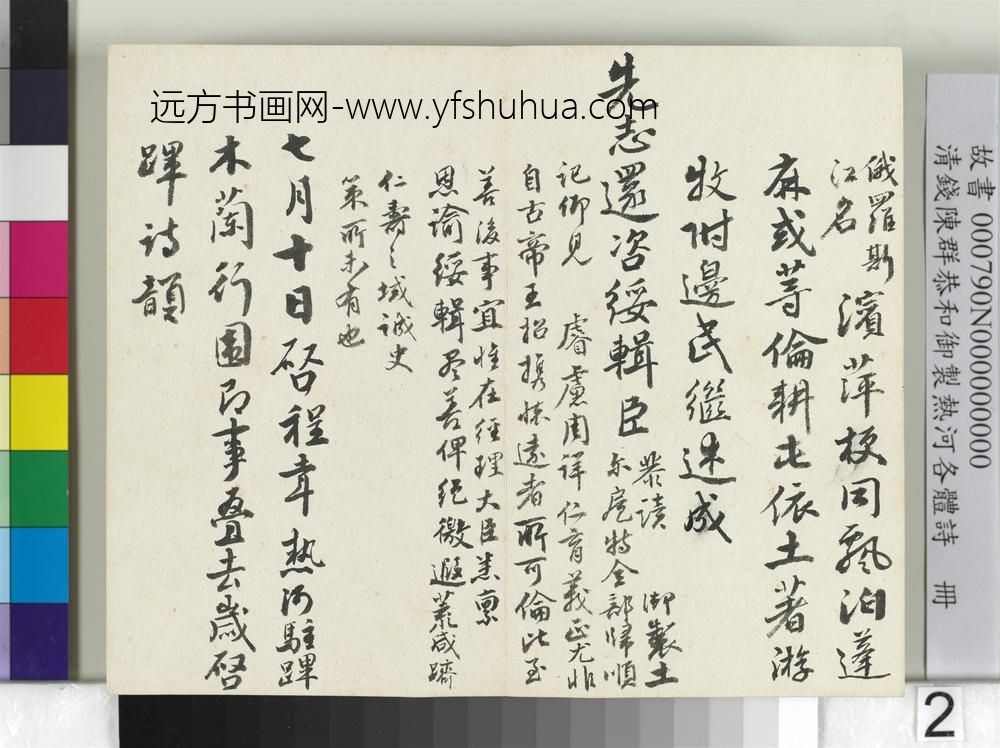 俄羅斯
江名
濱萍梗同飄泊蓬
麻或等倫耕屯依土著游
牧附邊民繼述成
先志還咨綏輯臣
恭讀 御製土
尔扈特全部歸順
記御見 睿慮周詳仁育義正尤非
自古帝王招携懷遠者所可倫比至
善後事宜惟在經理大臣悉禀
恩諭綏輯尽善俾絕徼遐荒咸躋
仁壽之域誠史
策所未有也
七月十日啓程幸熱河駐蹕
木蘭行圍即事叠去歲啓
蹕詩韻
远方书画网-www.yfshuhua.com
故書 000790N000000000
清錢陳群恭和御製熱河各體詩 冊
2